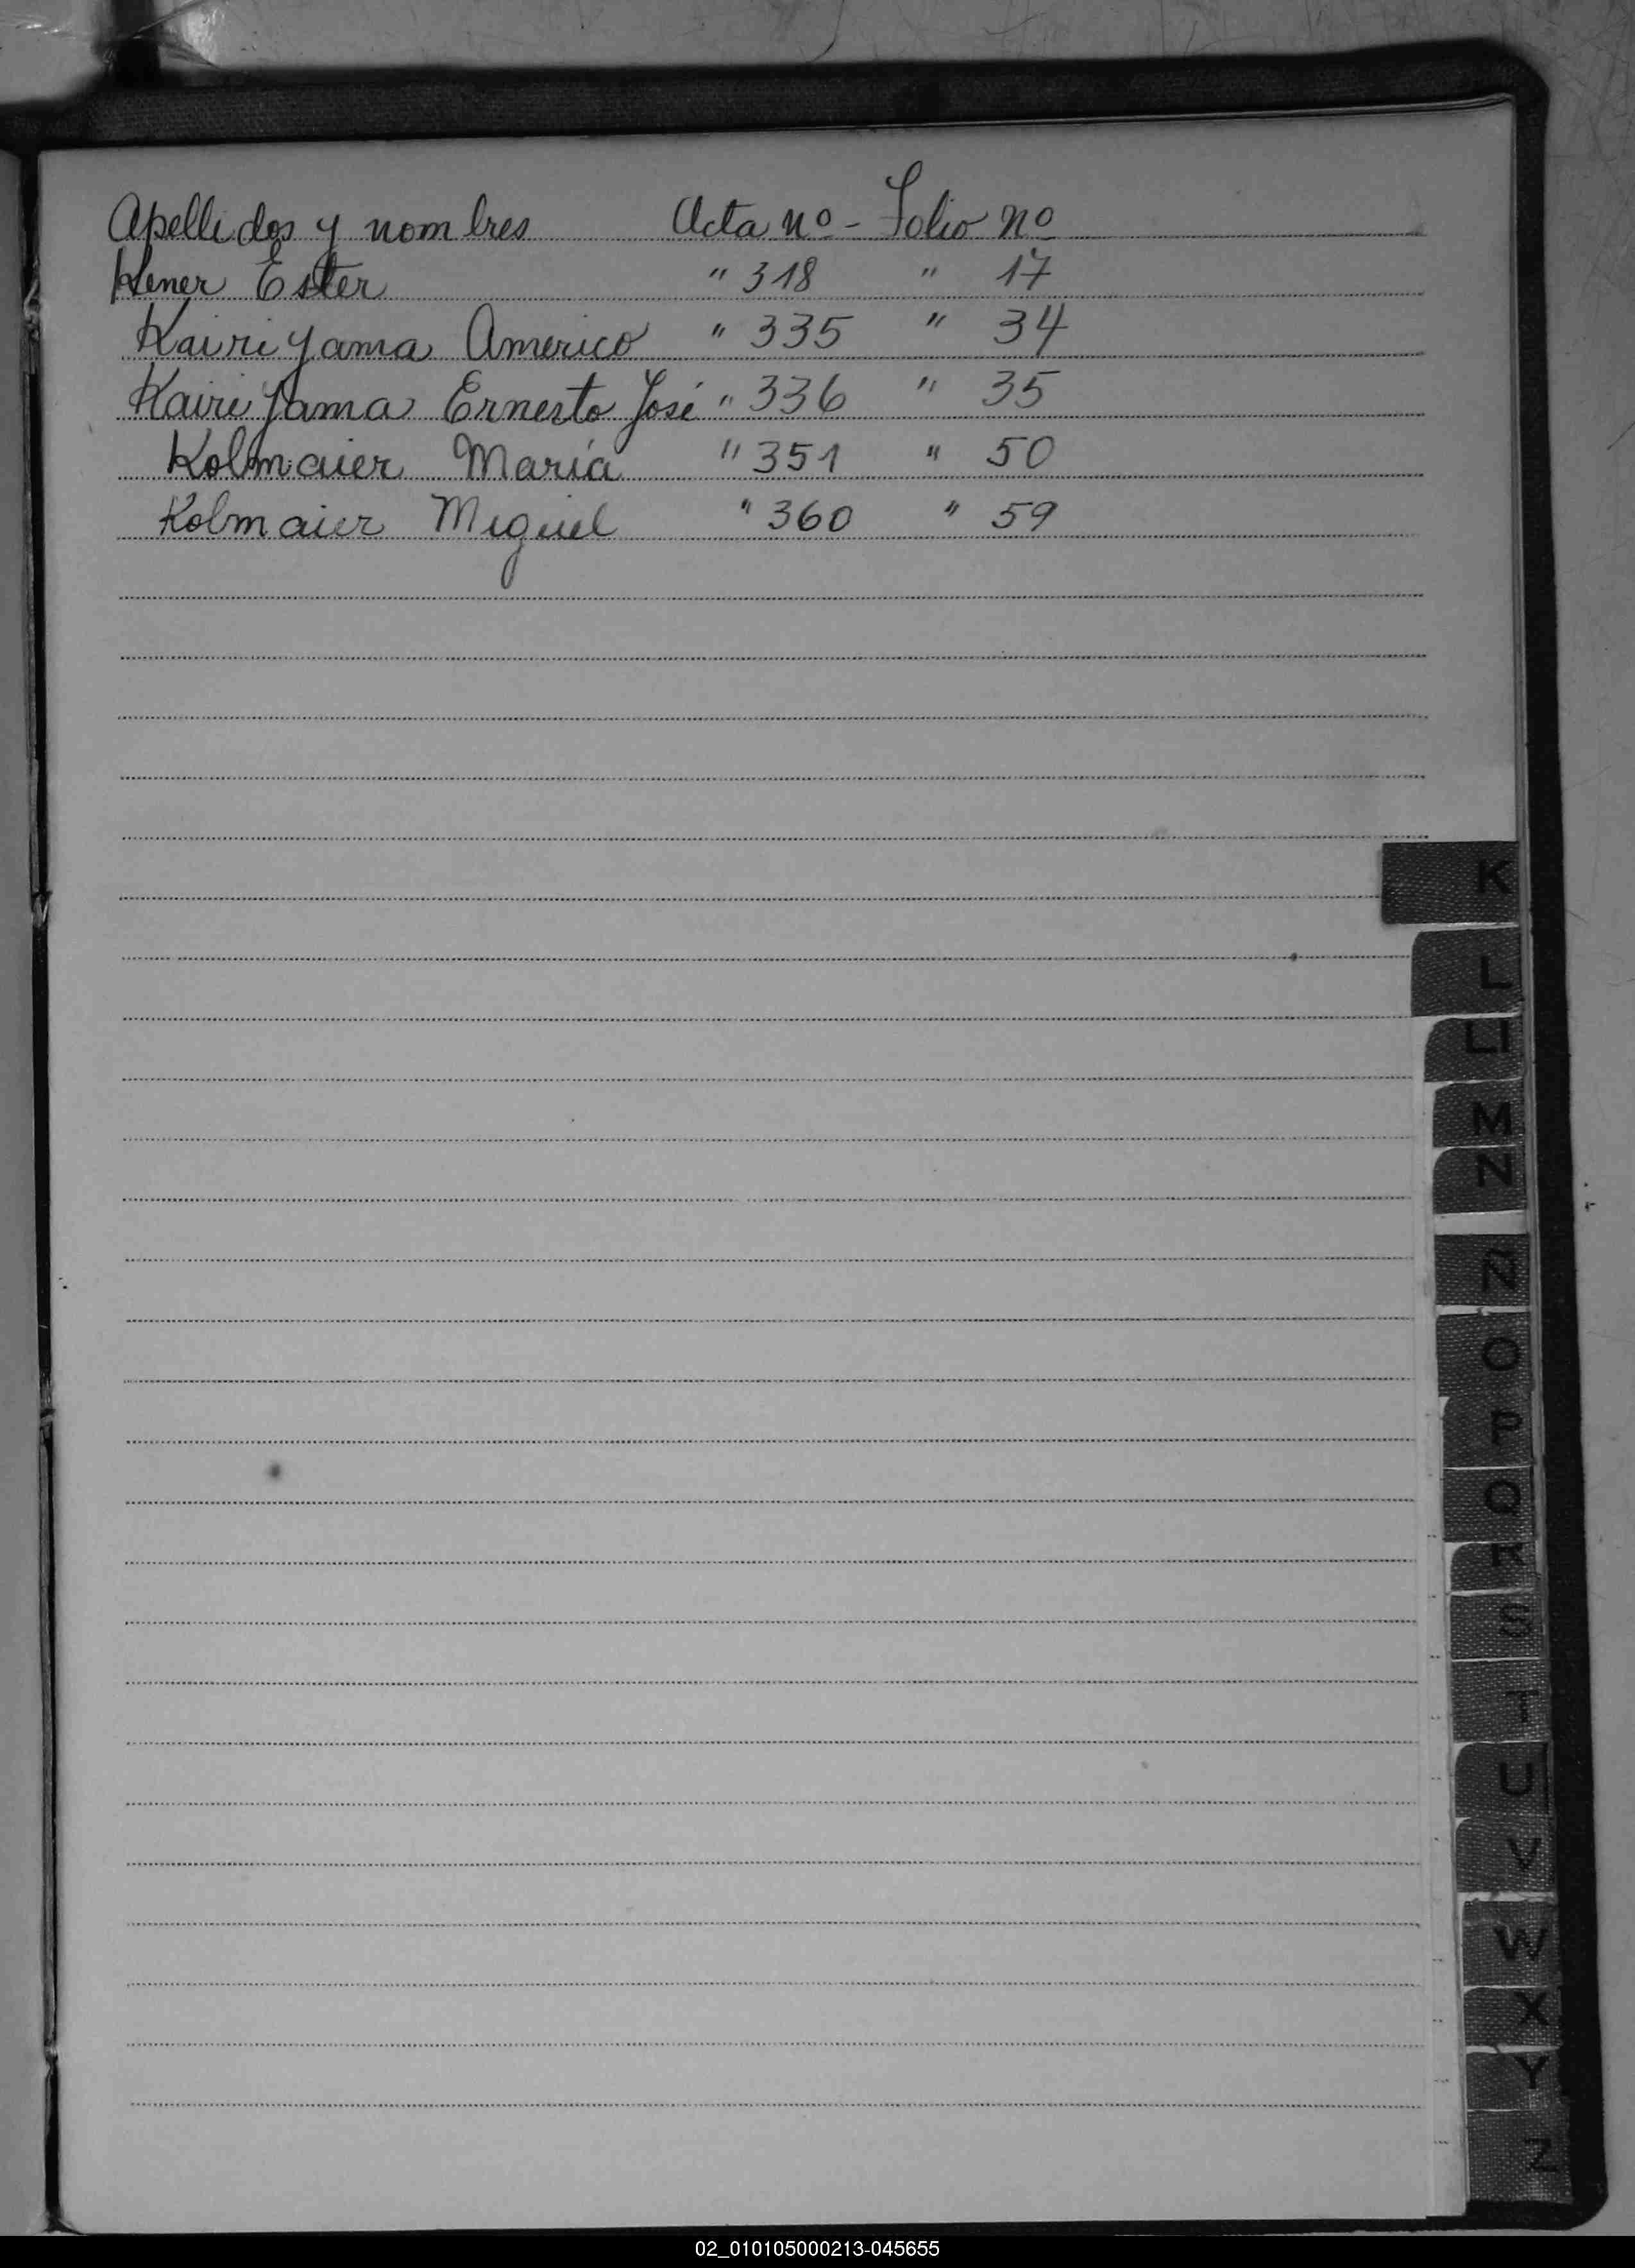 Apellidos y nombres Acta nº - Folio nº
Kener Ester " 318 " 17
Kairiyama Americo " 335 " 34
Kairiyama Ernesto José " 336 " 35
Kolmaier María " 351 " 50
Kolmaier Miguel " 360 " 59
K
L
Ll
M
N
Ñ
O
P
Q
R
S
T
U
V
W
X
Y
Z
02_010105000213-045655